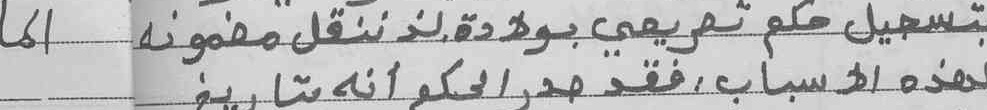 بتسجيل حكم تصريحي بولادة، لذ ننقل مضمونه الما
لهذه الأسباب، فقد صدر الحكم أنه بتاريخ